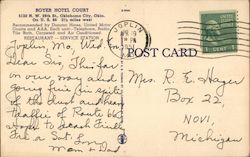 BOYER HOTEL COURT
5132 N. W. 39th St., Oklahoma City, Okla.
On U. S. 66 2½ miles west
Recommended by Duncan Hines, United Motor
Courts and AAA. Each unit—Telephone, Radio,
Tile Bath, Carpeted and Air Conditioned.
RESTAURANT - SERVICE STATION
JOPLIN
POST CARD
Joplin, Mo, Wed.
Dear Sis, Thus far
on our way and
going fine in spite
of the dust and heavy
traffic of Route 66
want to reach
Sat or Sat. Love
Mom & Dad
Mrs. R. E. Hayes
Box 22,
NOVI,
Michigan